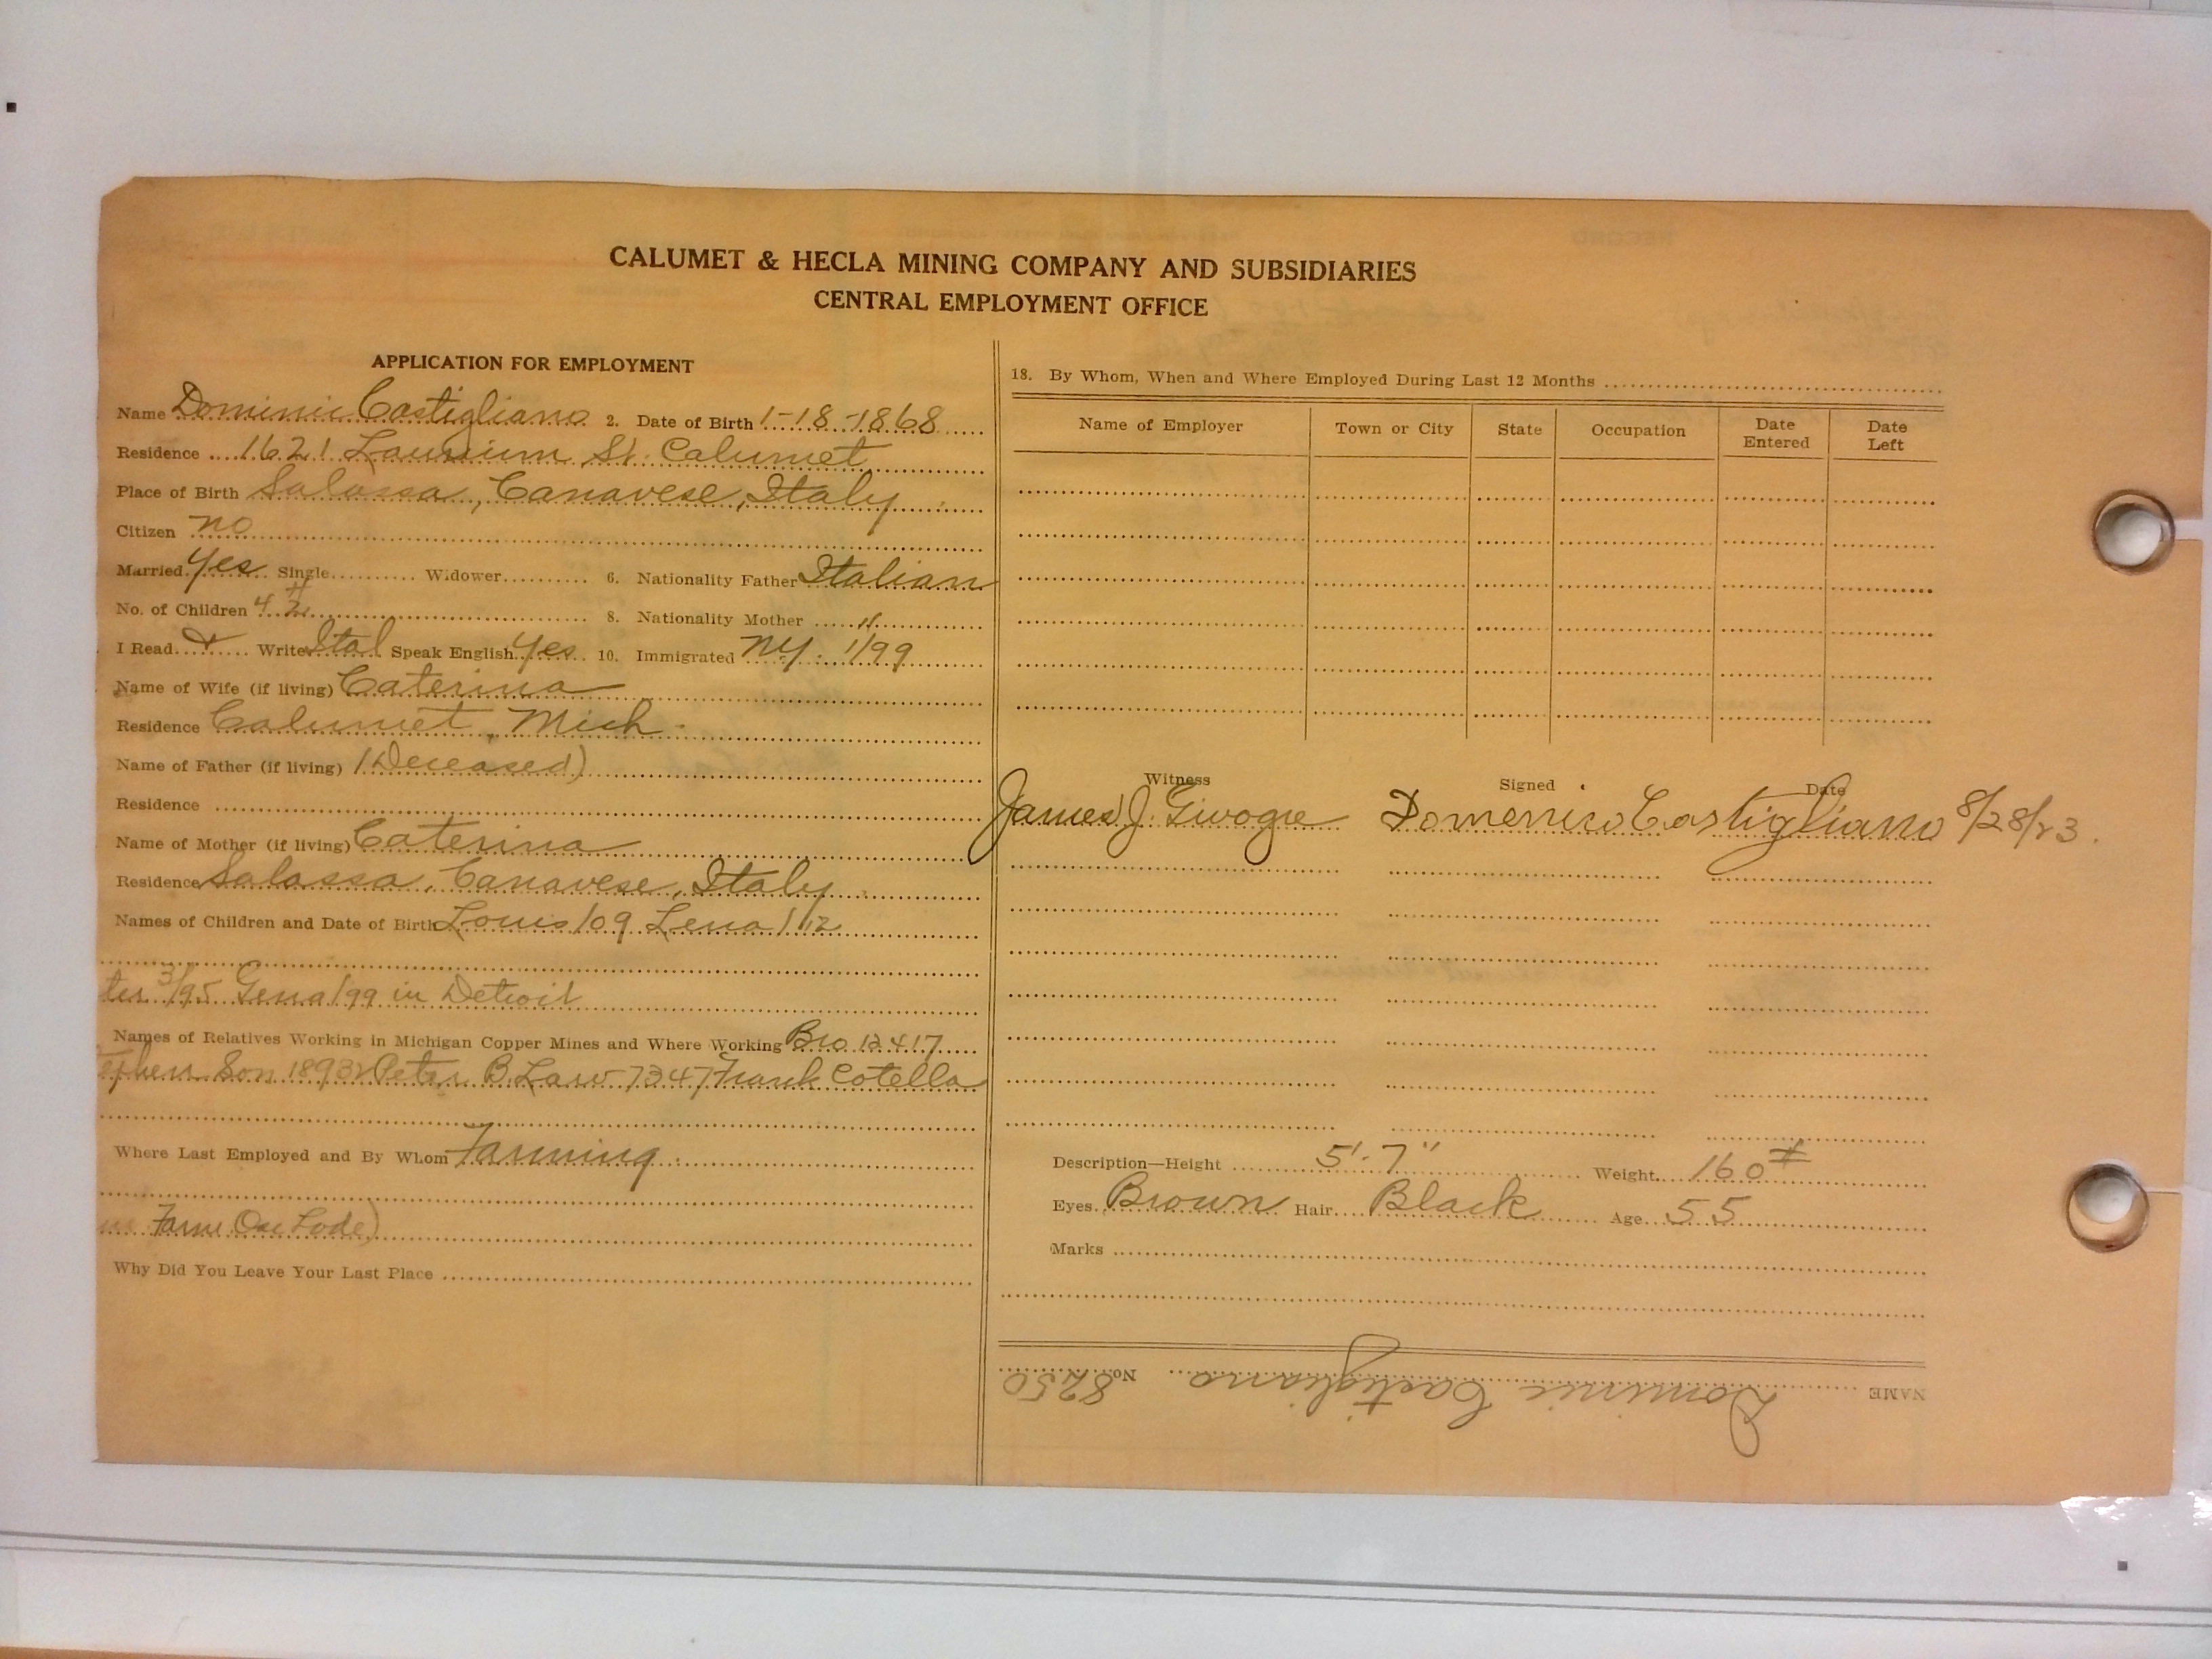 CALUMET & HECLA MINING COMPANY AND SUBSIDIARIES
CENTRAL EMPLOYMENT OFFICE
APPLICATION FOR EMPLOYMENT
Name Dominic Castigliano 2. Date of Birth 1-18-1868
Residence 1621 Laurium St. Calumet
Place of Birth Salassa, Canavese, Italy
Citizen no
Married yes Single Widower 6. Nationality Father Italian
No. of Children 4 8. Nationality Mother "
I Read & Write Ital Speak English Yes 10. Immigrated NY. 1/99
Name of Wife (if living) Caterina
Residence Calumet, Mich
Name of Father (if living) (Deceased)
Residence
Name of Mother (if living) Caterina
Residence Salassa, Canavese, Italy
Names of Children and Date of Birth Louis /09 Lena 1/12
ter 3/95 Gena /99 in Detroit
Names of Relatives Working in Michigan Copper Mines and Where Working Bro 12417
ephen Son 18932 Peter B Law 7347 Frank Cotella
Where Last Employed and By Whom Farming
Farm Osc Lode)
Why Did You Leave Your Last Place
18. By Whom, When and Where Employed During Last 12 Months
Name of Employer Town or City State Occupation Date Entered Date Left
Witness Signed Date
James J. Givogre Domenico Castigliano 8/28/23.
Description—Height 5'-7" Weight 160#
Eyes Brown Hair Black Age 55
Marks
NAME Dominic Castigliano No. 8250